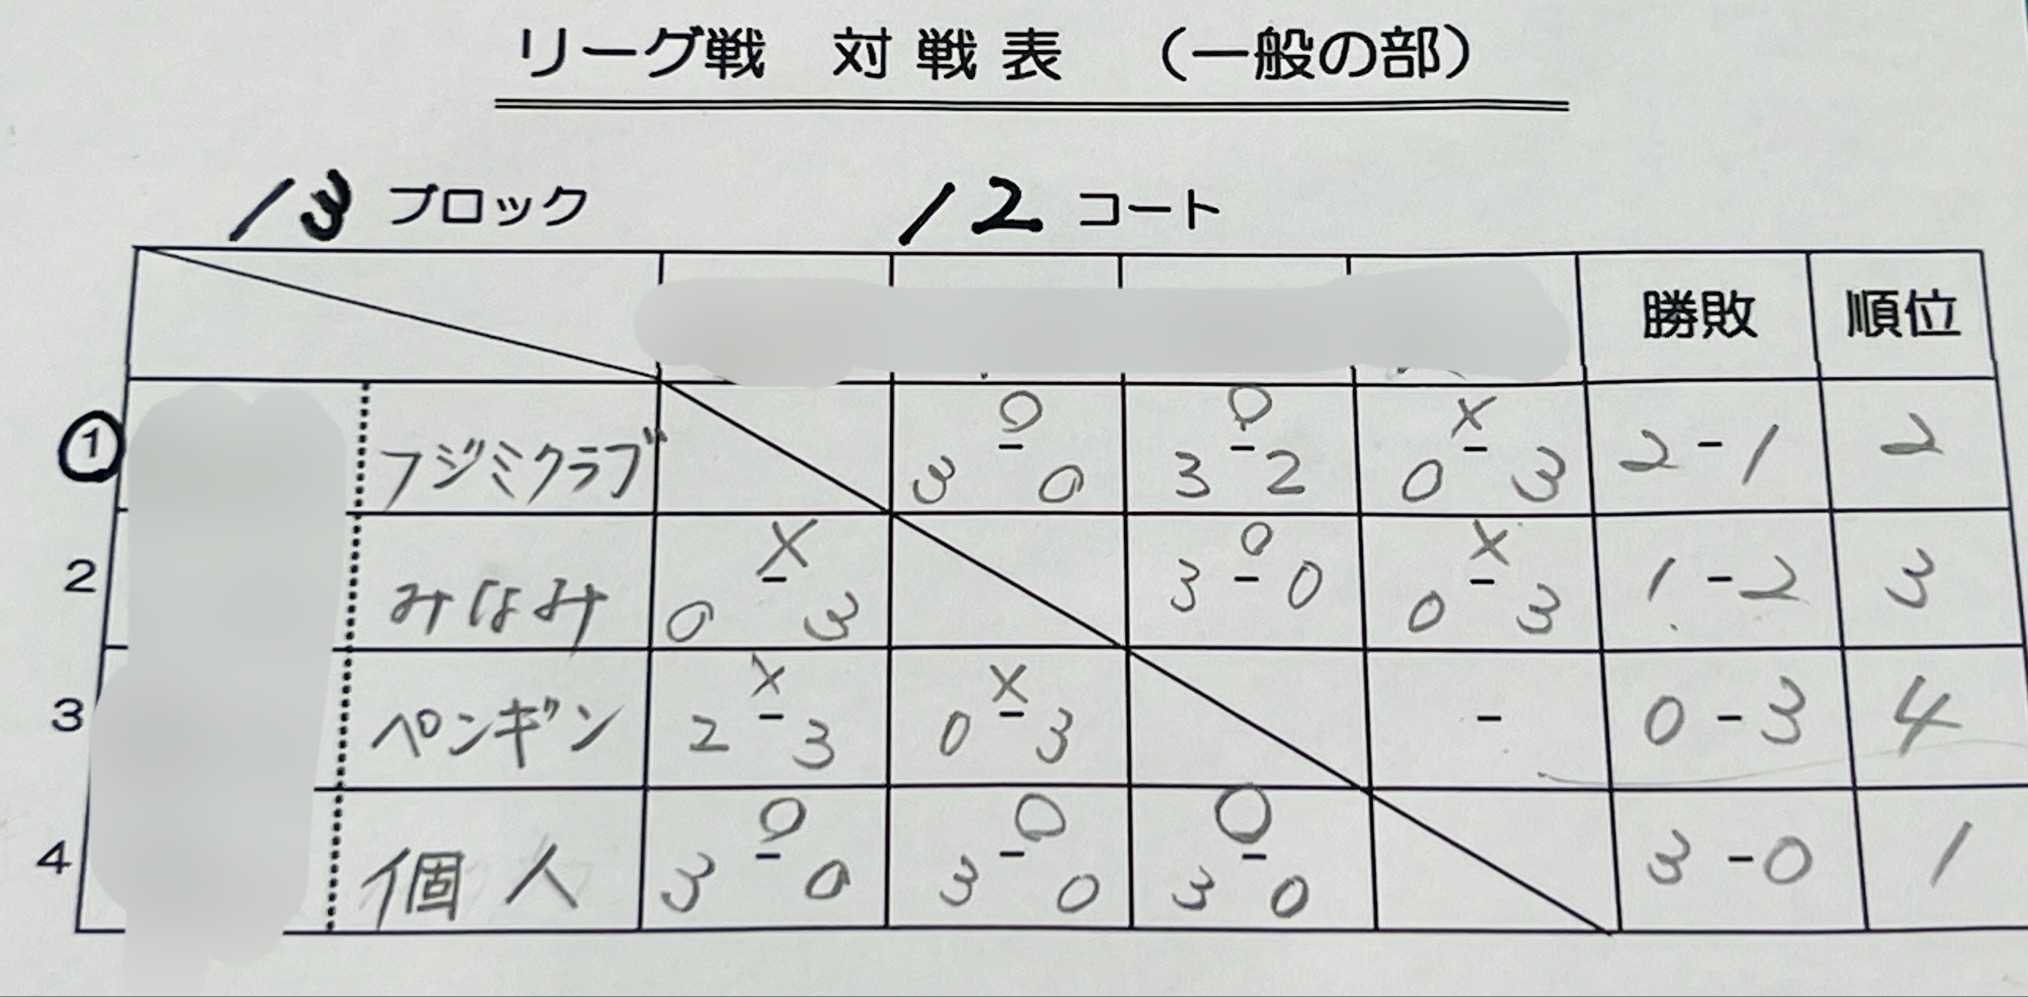 リーグ戦 対戦表 （一般の部）
13 ブロック 12 コート
勝敗 順位
① フジミクラブ ○ 3 - 0 ○ 3 - 2 × 0 - 3 2 - 1 2
2 みなみ × 0 - 3 ○ 3 - 0 × 0 - 3 1 - 2 3
3 ペンギン × 2 - 3 × 0 - 3 - 0 - 3 4
4 個人 ○ 3 - 0 ○ 3 - 0 ○ 3 - 0 3 - 0 1